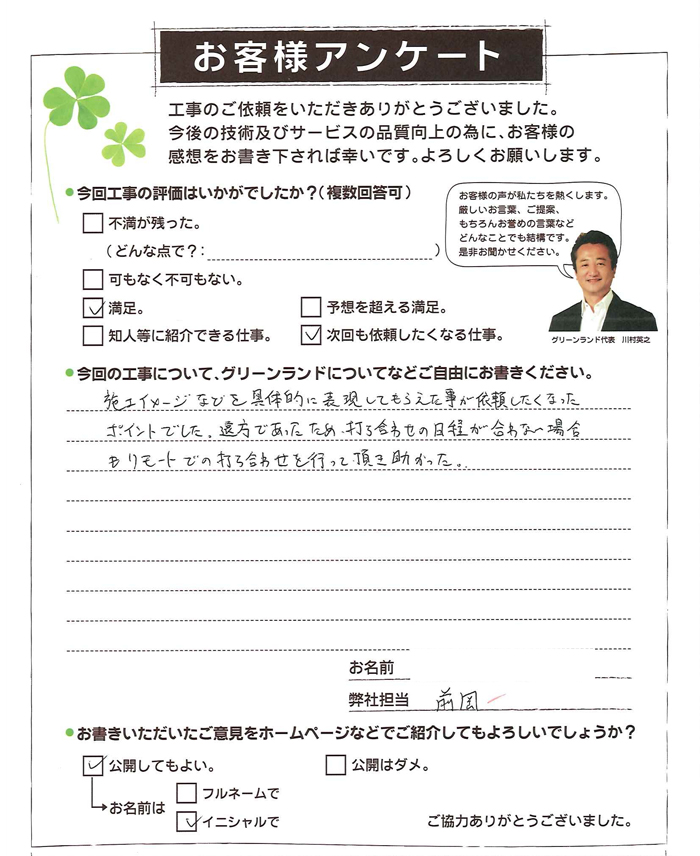 お客様アンケート
工事のご依頼をいただきありがとうございました。
今後の技術及びサービスの品質向上の為に、お客様の
感想をお書き下されば幸いです。よろしくお願いします。
今回工事の評価はいかがでしたか？（複数回答可）
不満が残った。
（どんな点で？：　　　）
可もなく不可もない。
満足。
予想を超える満足。
知人等に紹介できる仕事。
次回も依頼したくなる仕事。
お客様の声が私たちを熱くします。
厳しいお言葉、ご提案、
もちろんお誉めの言葉など
どんなことでも結構です。
是非お聞かせください。
グリーンランド代表　川村英之
今回の工事について、グリーンランドについてなどご自由にお書きください。
施工イメージなどを具体的に表現してもらえた事が依頼したくなった
ポイントでした。遠方であったため、打ち合わせの日程が合わない場合
もリモートでの打ち合わせを行って頂き助かった。
お名前
弊社担当　前
お書きいただいたご意見をホームページなどでご紹介してもよろしいでしょうか？
公開してもよい。
公開はダメ。
お名前は
フルネームで
イニシャルで
ご協力ありがとうございました。